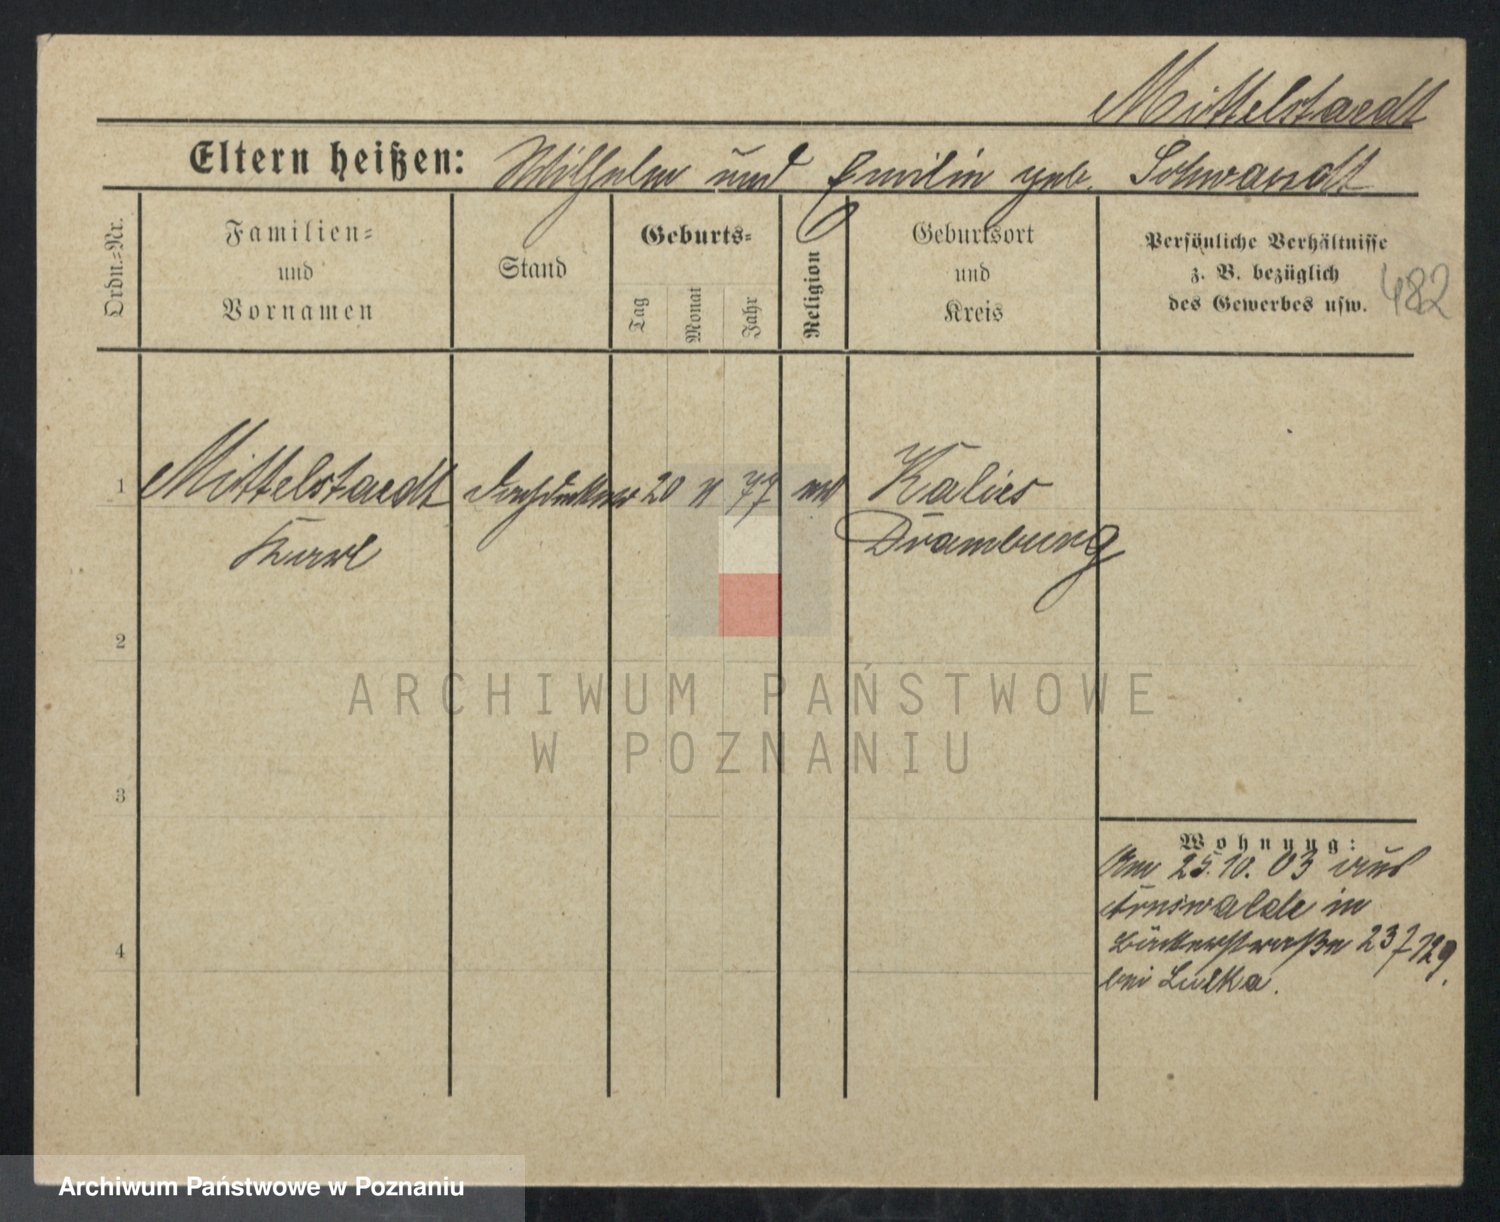 Mittelstaedt
Eltern heißen: Wilhelm und Emilie geb. Schwandt
Ordn.=Nr.
Familien=
und
Vornamen
Stand
Geburts=
Tag
Monat
Jahr
Religion
Geburtsort
und
Kreis
Persönliche Verhältnisse
z. B. bezüglich
des Gewerbes usw.
482
1 Mittelstaedt Dachdecker 20 11 77 Kalies
Karl Dramburg
2
3
4
Wohnung:
Am 25.10.03 aus
Arnswalde in
Bäckerstraße 23
bei Lulka.
ARCHIWUM PAŃSTWOWE
W POZNANIU
Archiwum Państwowe w Poznaniu